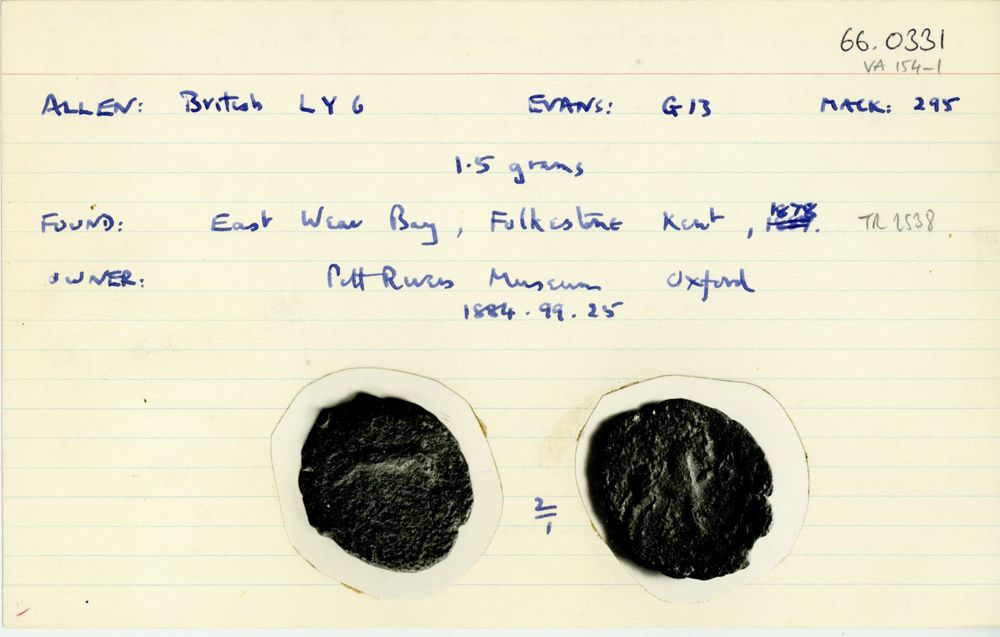 66.0331
VA 154-1
ALLEN: British LY 6 EVANS: G13 MACK: 295
1.5 grams
FOUND: East Wear Bay, Folkestone Kent, 1878. TR 2538
OWNER: Pitt Rivers Museum Oxford
1884.99.25
2
1